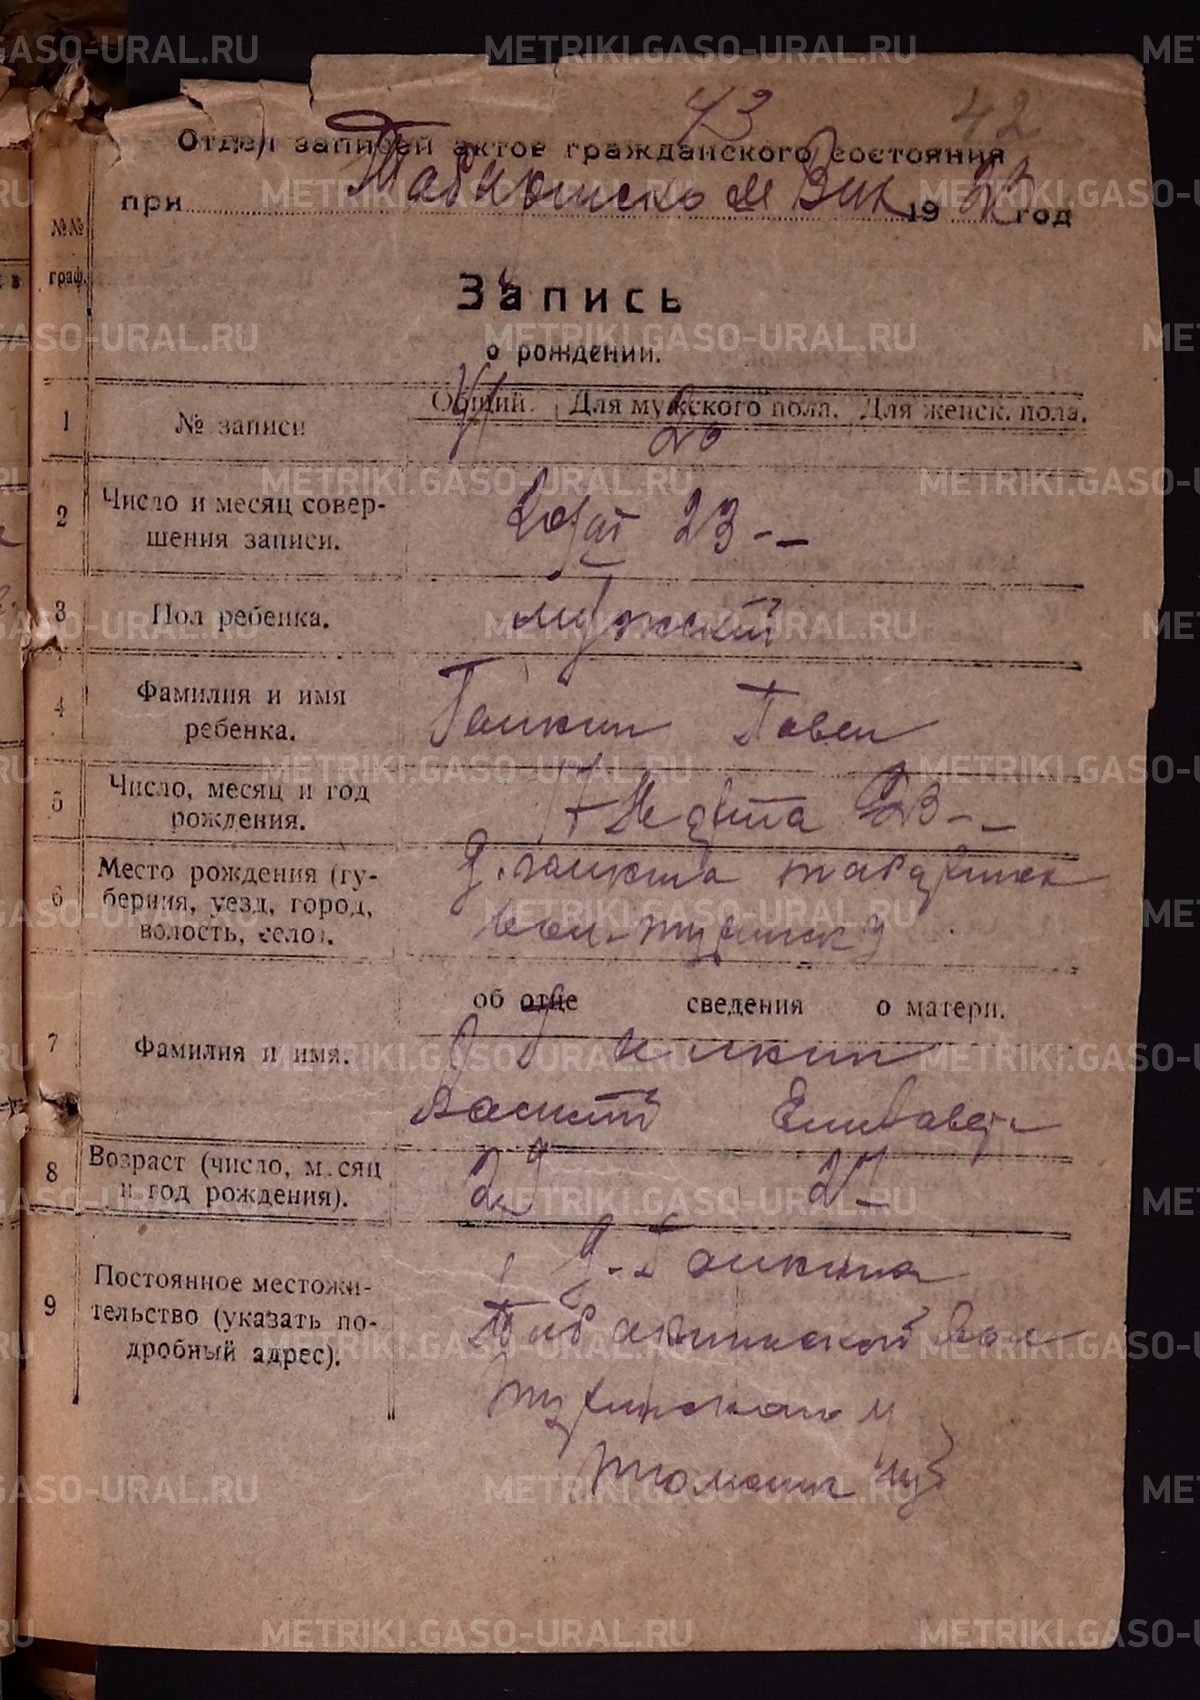 43 42
Отдел записей актов гражданского состояния
при Табаринском Вик 1923 год
№№ граф.
Запись
о рождении.
Общий. Для мужского пола. Для женск. пола.
1 № записи 20
2 Число и месяц совер-
шения записи. 23
3 Пол ребенка. мужской
4 Фамилия и имя
ребенка. Галкин Павел
5 Число, месяц и год
рождения. 17 23
6 Место рождения (гу-
берния, уезд, город,
волость, село).
д. Галкина
вол. туринск у
об отце сведения о матери.
7 Фамилия и имя. Галкин
Василий Елизавета
8 Возраст (число, месяц
и год рождения). 29 27
9 Постоянное местожи-
тельство (указать по-
дробный адрес).
д. Галкина
Табаринской вол
туринскаго у
METRIKI.GASO-URAL.RU